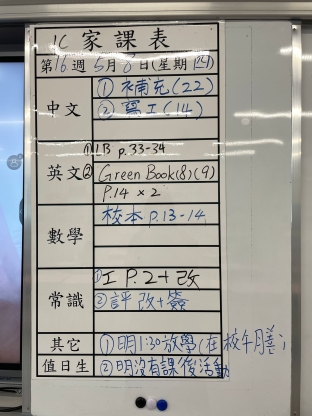 1C 家課表
第16週 5月8日(星期四)
中文 ①補充(22)
②寫工(14)
英文 ①LB p.33-34
②Green Book(8)(9)
P.14 × 2
數學 校本 p.13-14
常識 ①工 P.2+改
②評 改+簽
其它 ①明1:30放學(在校午膳)
值日生 ②明沒有課後活動